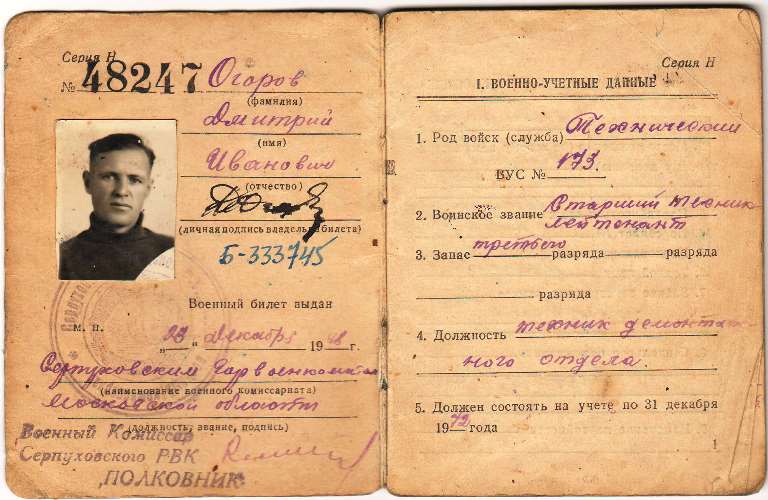 Серия Н
№ 48247
Огоров
(фамилия)
Дмитрий
(имя)
Иванович
(отчество)
(личная подпись владельца билета)
Б-333745
Военный билет выдан
м. п.
„23“ декабря 1948 г.
Серпуховским Горвоенкоматом
(наименование военного комиссариата)
Московской области
(должность, звание, подпись)
Военный Комиссар
Серпуховского РВК
ПОЛКОВНИК
Серия Н
I. ВОЕННО-УЧЕТНЫЕ ДАННЫЕ
1. Род войск (служба) Технический
ВУС № 173.
2. Воинское звание Старший техник
лейтенант
3. Запас третьего разряда разряда
разряда
4. Должность техник демонтаж
ного отдела.
5. Должен состоять на учете по 31 декабря
1972 года
1